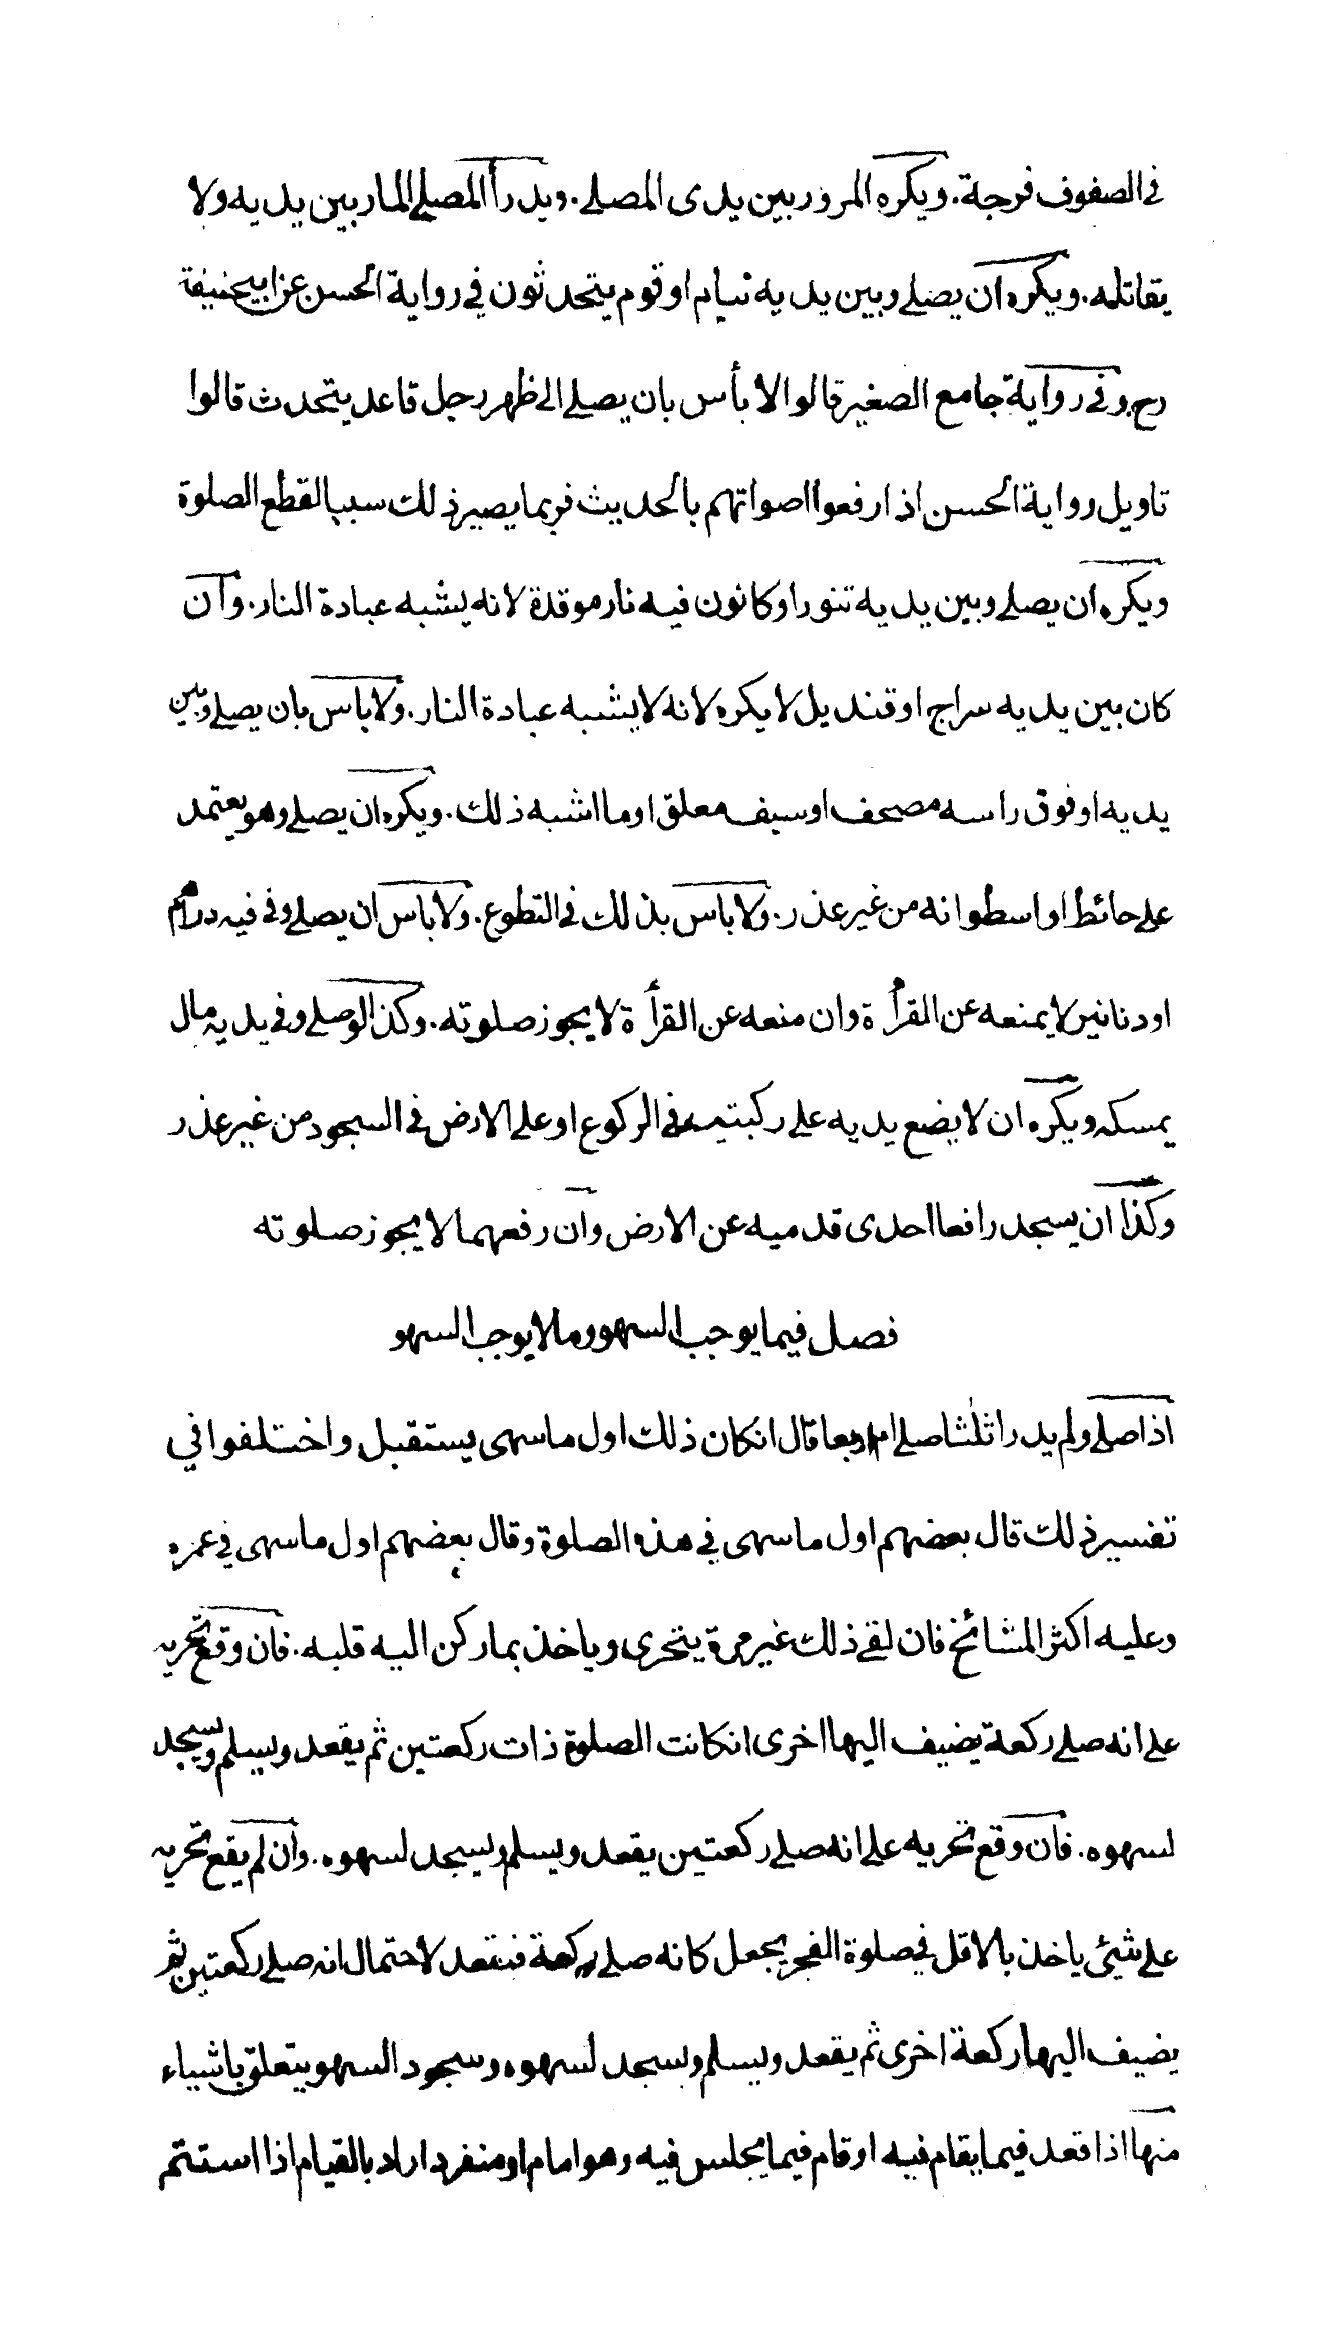 في الصفوف فرجة. ويكره المرور بين يدى المصلے. ويدرأ المصلے المار بين يديه ولا
يقاتله. ويكره ان يصلے وبين يديه نيام او قوم يتحدثون في رواية الحسن عن ابيحنيفة
رح. وفي رواية جامع الصغير قالوا لا بأس بان يصلے الى ظهر رجل قاعد يتحدث قالوا
تاويل رواية الحسن اذا رفعوا اصواتهم بالحديث فربما يصير ذلك سببا لقطع الصلوة
ويكره ان يصلے وبين يديه تنور او كانون فيه نار موقدة لانه يشبه عبادة النار. وان
كان بين يديه سراج او قنديل لا يكره لانه لا يشبه عبادة النار. ولا باس بان يصلے وبين
يديه او فوق راسه مصحف او سيف معلق او ما اشبه ذلك. ويكره ان يصلے وهو يعتمد
علے حائط او اسطوانه من غير عذر. ولا باس بذلك في التطوع. ولا باس ان يصلے وفي فيه دراهم
او دنانير لا يمنعه عن القرأة وان منعه عن القرأة لا يجوز صلوته. وكذا لو صلے وفي يديه مال
يمسكه ويكره ان لا يضع يديه علے ركبتيه في الركوع او علے الارض في السجود من غير عذر
وكذا ان يسجد رافعا احدى قدميه عن الارض وان رفعهما لا يجوز صلوته
فصل فيما يوجب السهو وما لا يوجب السهو
اذا صلے ولم يدر اثلثا صلے ام اربعا قال انكان ذلك اول ما سهى يستقبل واختلفوا في
تفسير ذلك قال بعضهم اول ما سهى في هذه الصلوة وقال بعضهم اول ما سهى في عمره
وعليه اكثر المشائخ فان لقے ذلك غير مرة يتحرى وياخذ بما ركن اليه قلبه. فان وقع تحريه
علے انه صلے ركعة يضيف اليها اخرى انكانت الصلوة ذات ركعتين ثم يقعد ويسلم ويسجد
لسهوه. فان وقع تحريه علے انه صلے ركعتين يقعد ويسلم ويسجد لسهوه. وان لم يقع تحريه
علے شيئ ياخذ بالاقل في صلوة الفجر يجعل كانه صلے ركعة فيقعد لاحتمال انه صلے ركعتين ثم
يضيف اليها ركعة اخرى ثم يقعد ويسلم ويسجد لسهوه وسجود السهو يتعلق باشياء
منها اذا قعد فيما يقام فيه او قام فيما يجلس فيه وهو امام او منفرد اراد بالقيام اذا استتم